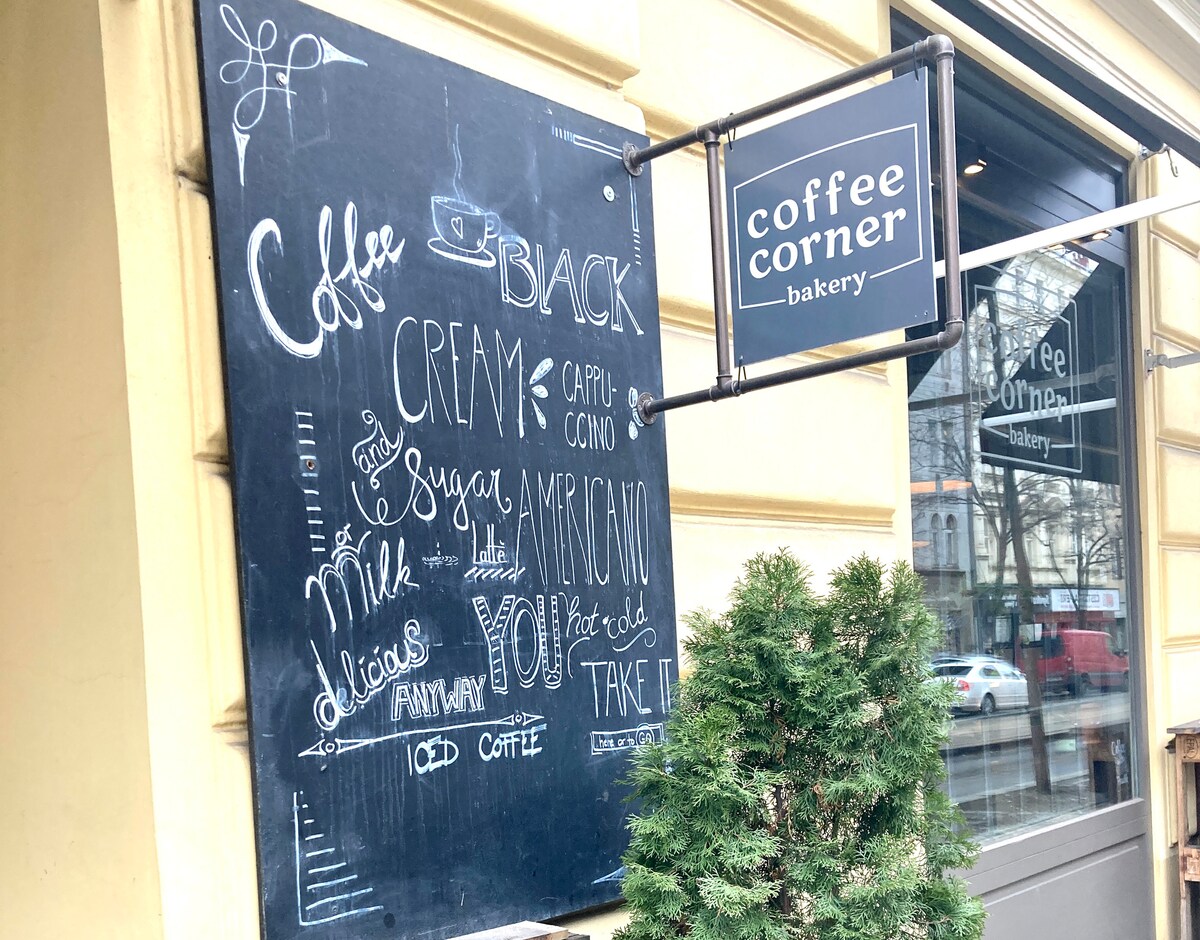 Coffee
BLACK
CREAM
CAPPU-
CCINO
and
Sugar
AMERICANO
or
Milk
Latté
YOU
hot • cold
delicious
ANYWAY
TAKE IT
here or to GO
ICED COFFEE
coffee
corner
bakery
coffee
corner
bakery